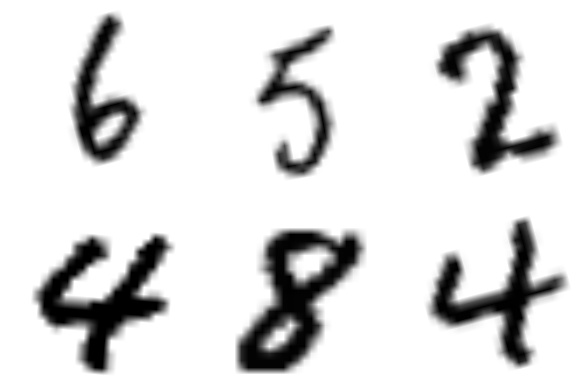 6 5 2
4 8 4